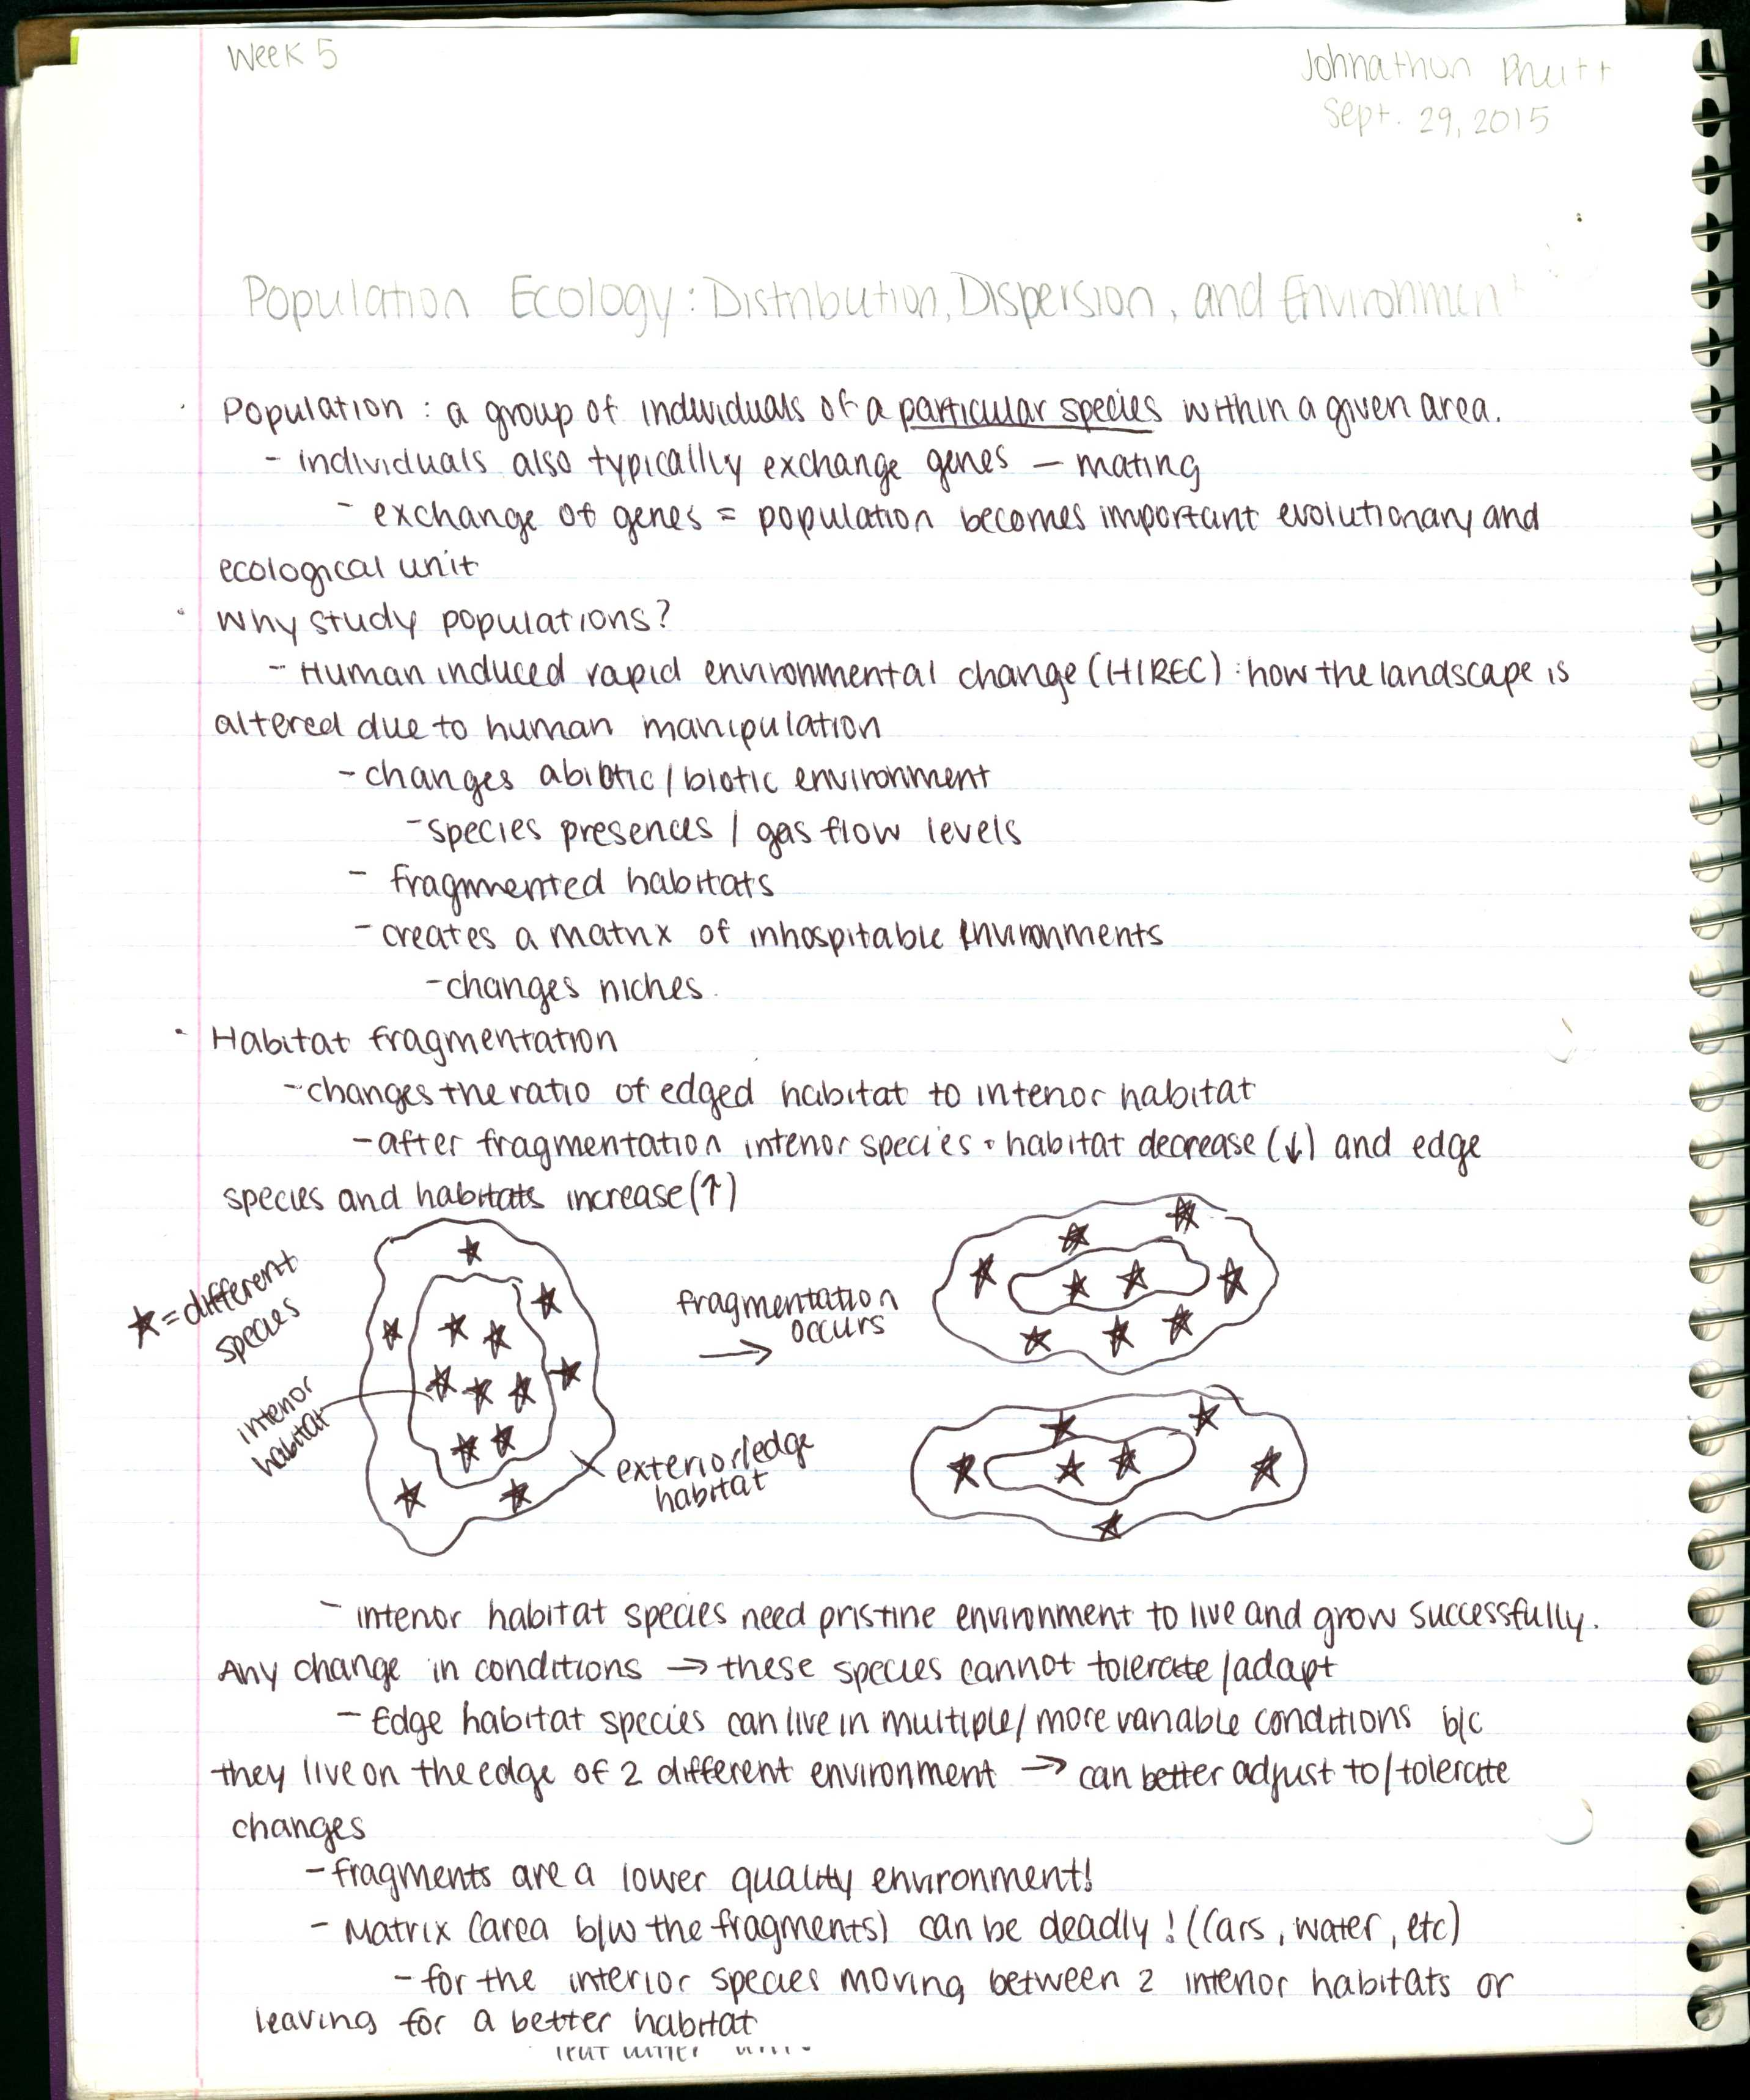 Week 5
Johnathan Pruitt
Sept. 29, 2015
Population Ecology: Distribution, Dispersion, and Environment
· Population : a group of individuals of a particular species within a given area.
- individuals also typicallly exchange genes — mating
- exchange of genes = population becomes important evolutionary and
ecological unit
· Why study populations?
- Human induced rapid environmental change (HIREC) : how the landscape is
altered due to human manipulation
- changes abiotic / biotic environment
- species presences / gas flow levels
- fragmented habitats
- creates a matrix of inhospitable environments
- changes niches.
· Habitat fragmentation
- changes the ratio of edged habitat to interior habitat
- after fragmentation interior species + habitat decrease (↓) and edge
species and habitats increase (↑)
★ = different
species
interior
habitat
exterior/edge
habitat
fragmentation
occurs
→
- interior habitat species need pristine environment to live and grow successfully.
Any change in conditions → these species cannot tolerate / adapt
- Edge habitat species can live in multiple / more variable conditions b/c
they live on the edge of 2 different environment → can better adjust to / tolerate
changes
- fragments are a lower quality environment!
- Matrix (area b/w the fragments) can be deadly ! (Cars, water, etc)
- for the interior species moving between 2 interior habitats or
leaving for a better habitat